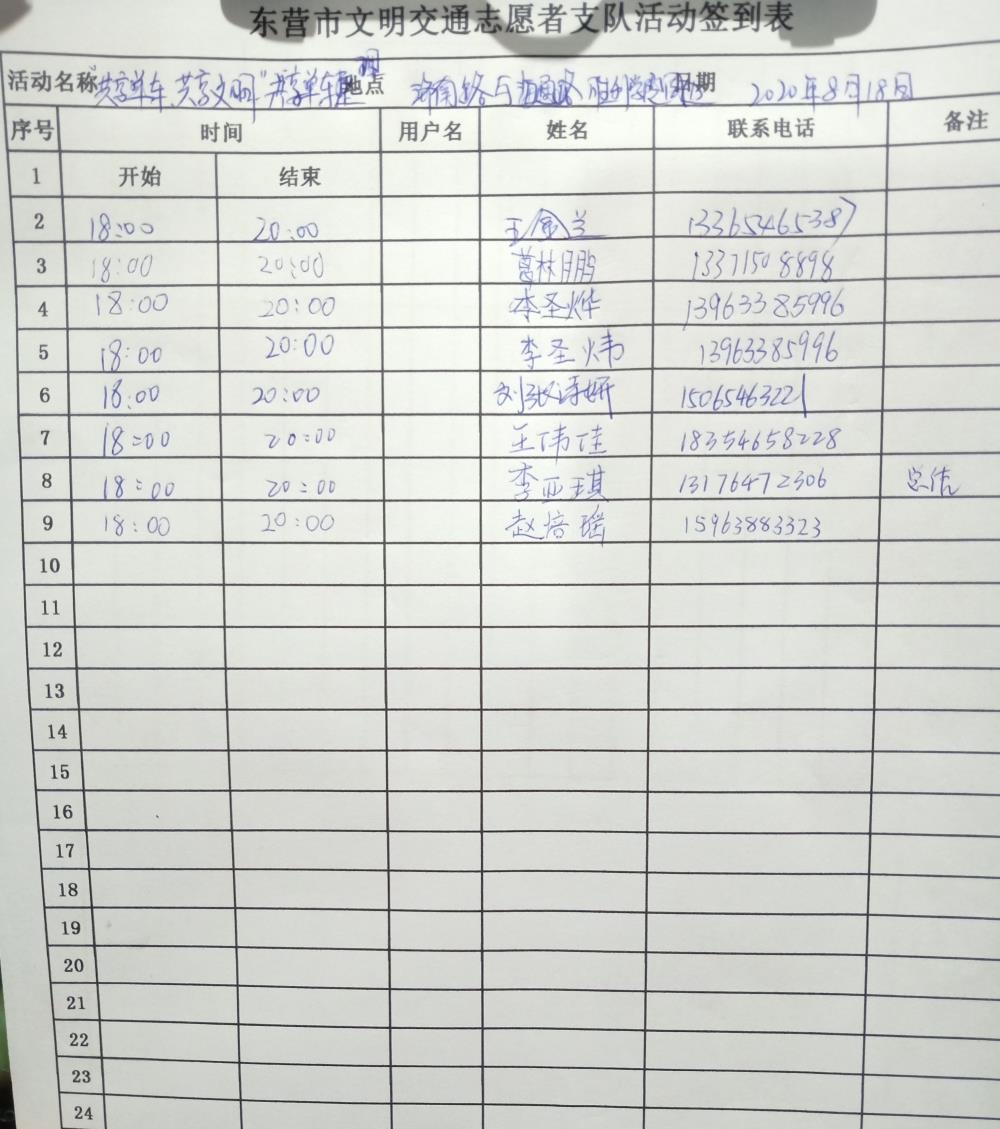 东营市文明交通志愿者支队活动签到表
活动名称 "共享单车、共享文明" 共享单车 地点 济南路与 日期 2020年8月18日
序号 时间 用户名 姓名 联系电话 备注
1 开始 结束
2 18:00 20:00 王金兰 13365465387
3 18:00 20:00 葛林鹏 13371508898
4 18:00 20:00 李圣烨 13963385996
5 18:00 20:00 李圣炜 13963385996
6 18:00 20:00 刘张诗妍 15065463221
7 18:00 20:00 王伟佳 18354658228
8 18:00 20:00 李亚琪 13176472306 总结
9 18:00 20:00 赵培瑶 15963883323
10
11
12
13
14
15
16
17
18
19
20
21
22
23
24